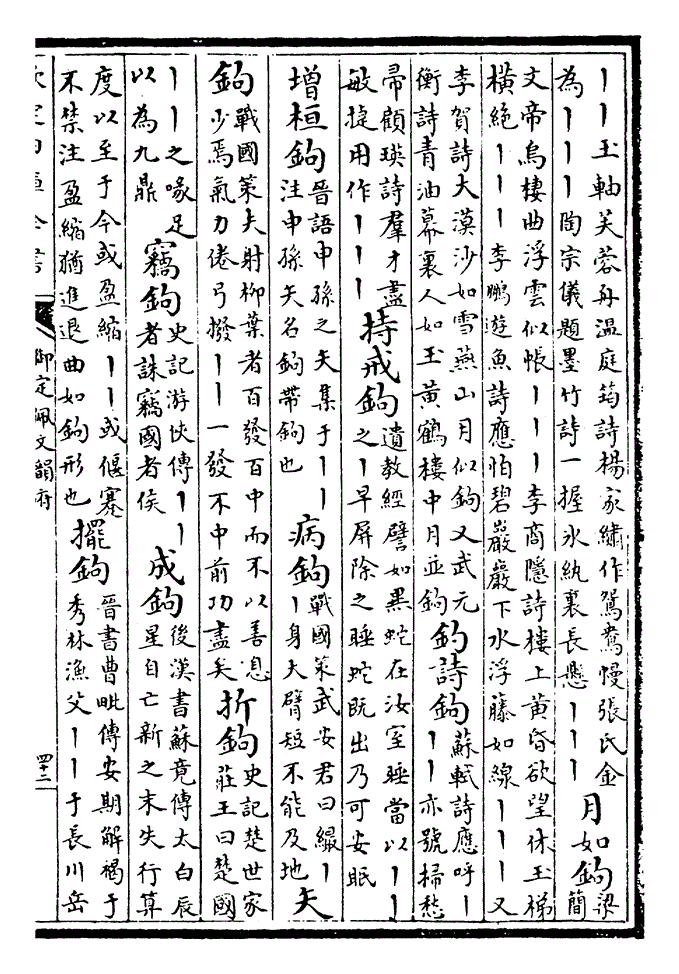 ｜｜玉軸芙蓉舟温庭筠詩楊家繡作鴛鴦幔張氏金
為｜｜｜陶宗儀題墨竹詩一握氷紈裏長懸｜｜｜
月如鉤
梁
簡
文帝烏棲曲浮雲似帳｜｜｜李商隱詩樓上黄昏欲望休玉梯
横絶｜｜｜李鵬遊魚詩應怕碧巖巖下水浮藤如線｜｜｜又
李賀詩大漠沙如雪燕山月似鉤又武元
衡詩青油幕裏人如玉黄鶴樓中月並鉤
釣詩鉤
蘇軾詩應呼｜
｜｜亦號掃愁
帚顧瑛詩羣才盡
敏捷用作｜｜｜
持戒鉤
遺教經譬如黒蛇在汝室睡當以｜｜
之｜早屏除之睡蛇既出乃可安眠
增桓鉤
晉語申孫之矢集于｜｜
注申孫矢名鉤帶鉤也
病鉤
戰國策武安君曰繓｜
｜身大臂短不能及地
矢
鉤
戰國策夫射柳葉者百發百中而不以善息
少焉氣力倦弓撥｜｜一發不中前功盡矣
折鉤
史記楚世家
莊王曰楚國
｜｜之喙足
以為九鼎
竊鉤
史記游俠傳｜｜
者誅竊國者侯
成鉤
後漢書蘇竟傳太白辰
星自亡新之末失行算
度以至于今或盈縮｜｜或偃蹇
不禁注盈縮猶進退曲如鉤形也
擺鉤
晉書曹毗傳安期解褐于
秀林漁父｜｜于長川岳
欽定四庫全書
御定佩文韻府
四十二